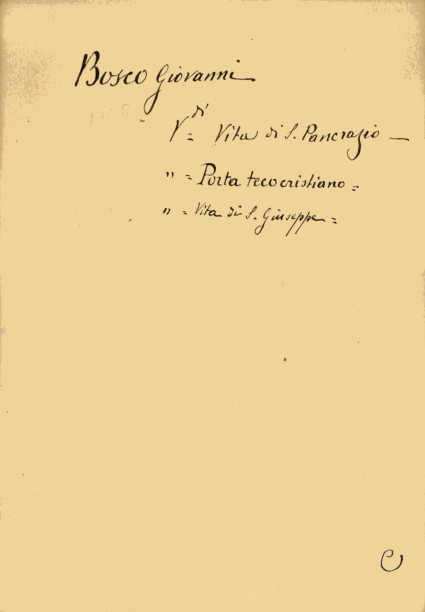 Bosco Giovanni
Vdi = Vita di S. Pancrazio —
" = Porta teco cristiano =
" = Vita di S. Giuseppe =